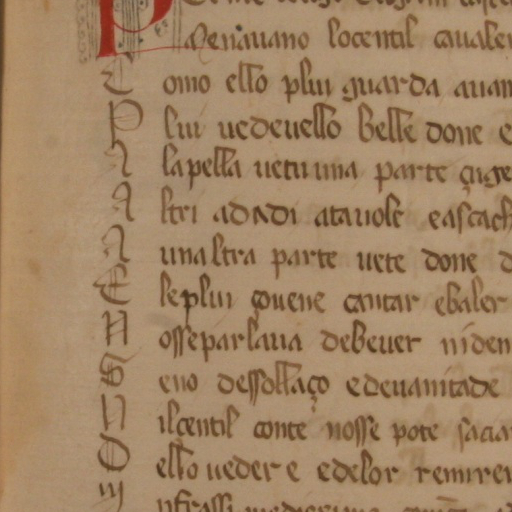 Menavano locentil cavaler
Como ello plui guarda avan
Plui vedevello belle done e
Alapella vetuuna parte çuge
Altri adadi atavole eascach
Aunaltra parte vete done d
Eleplui çovene cantar ebaler
Nosseparlava debever niden
Seno dessollaço edevanitade
Nilcentil conte nosse pote saciar
Ello veder e edelor remirer